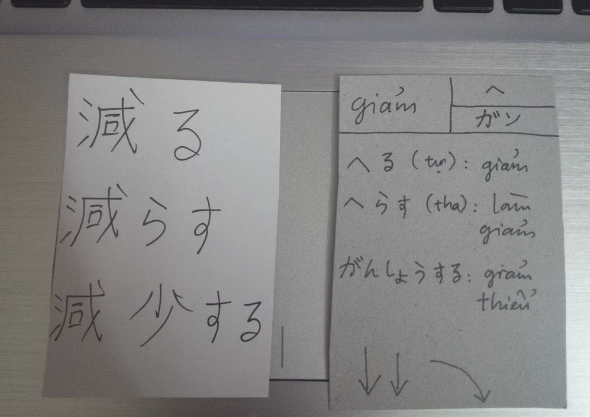 減る
減らす
減少する
giảm
へ
ガン
へる (tự): giảm
へらす (tha): làm
giảm
がんしょうする: giảm
thiểu